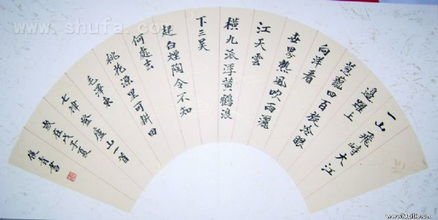 一山飛峙大江
邊躍上
蔥蘢四百旋冷眼
向洋看
世界熱風吹雨灑
江天雲
橫九派浮黃鶴浪
下三吳
起白煙陶令不知
何處去
桃花源里可耕田
毛澤東
七律登廬山一首
歲在丙子夏
書
www.shufa.com